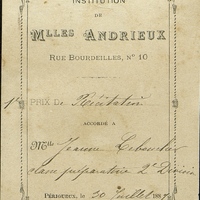 INSTITUTION
DE
MLLES ANDRIEUX
RUE BOURDEILLES, Nº 10
1er PRIX De Récitation
ACCORDÉ A
Mlle Jeanne
classe préparatoire 2e Division
PÉRIGUEUX, le 30 Juillet 188